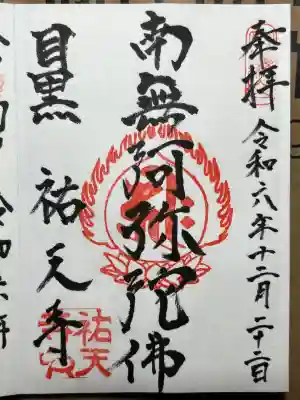 奉拝
令和六年十二月二十二日
南無阿弥陀佛
目黒 祐天寺
祐天
寺印